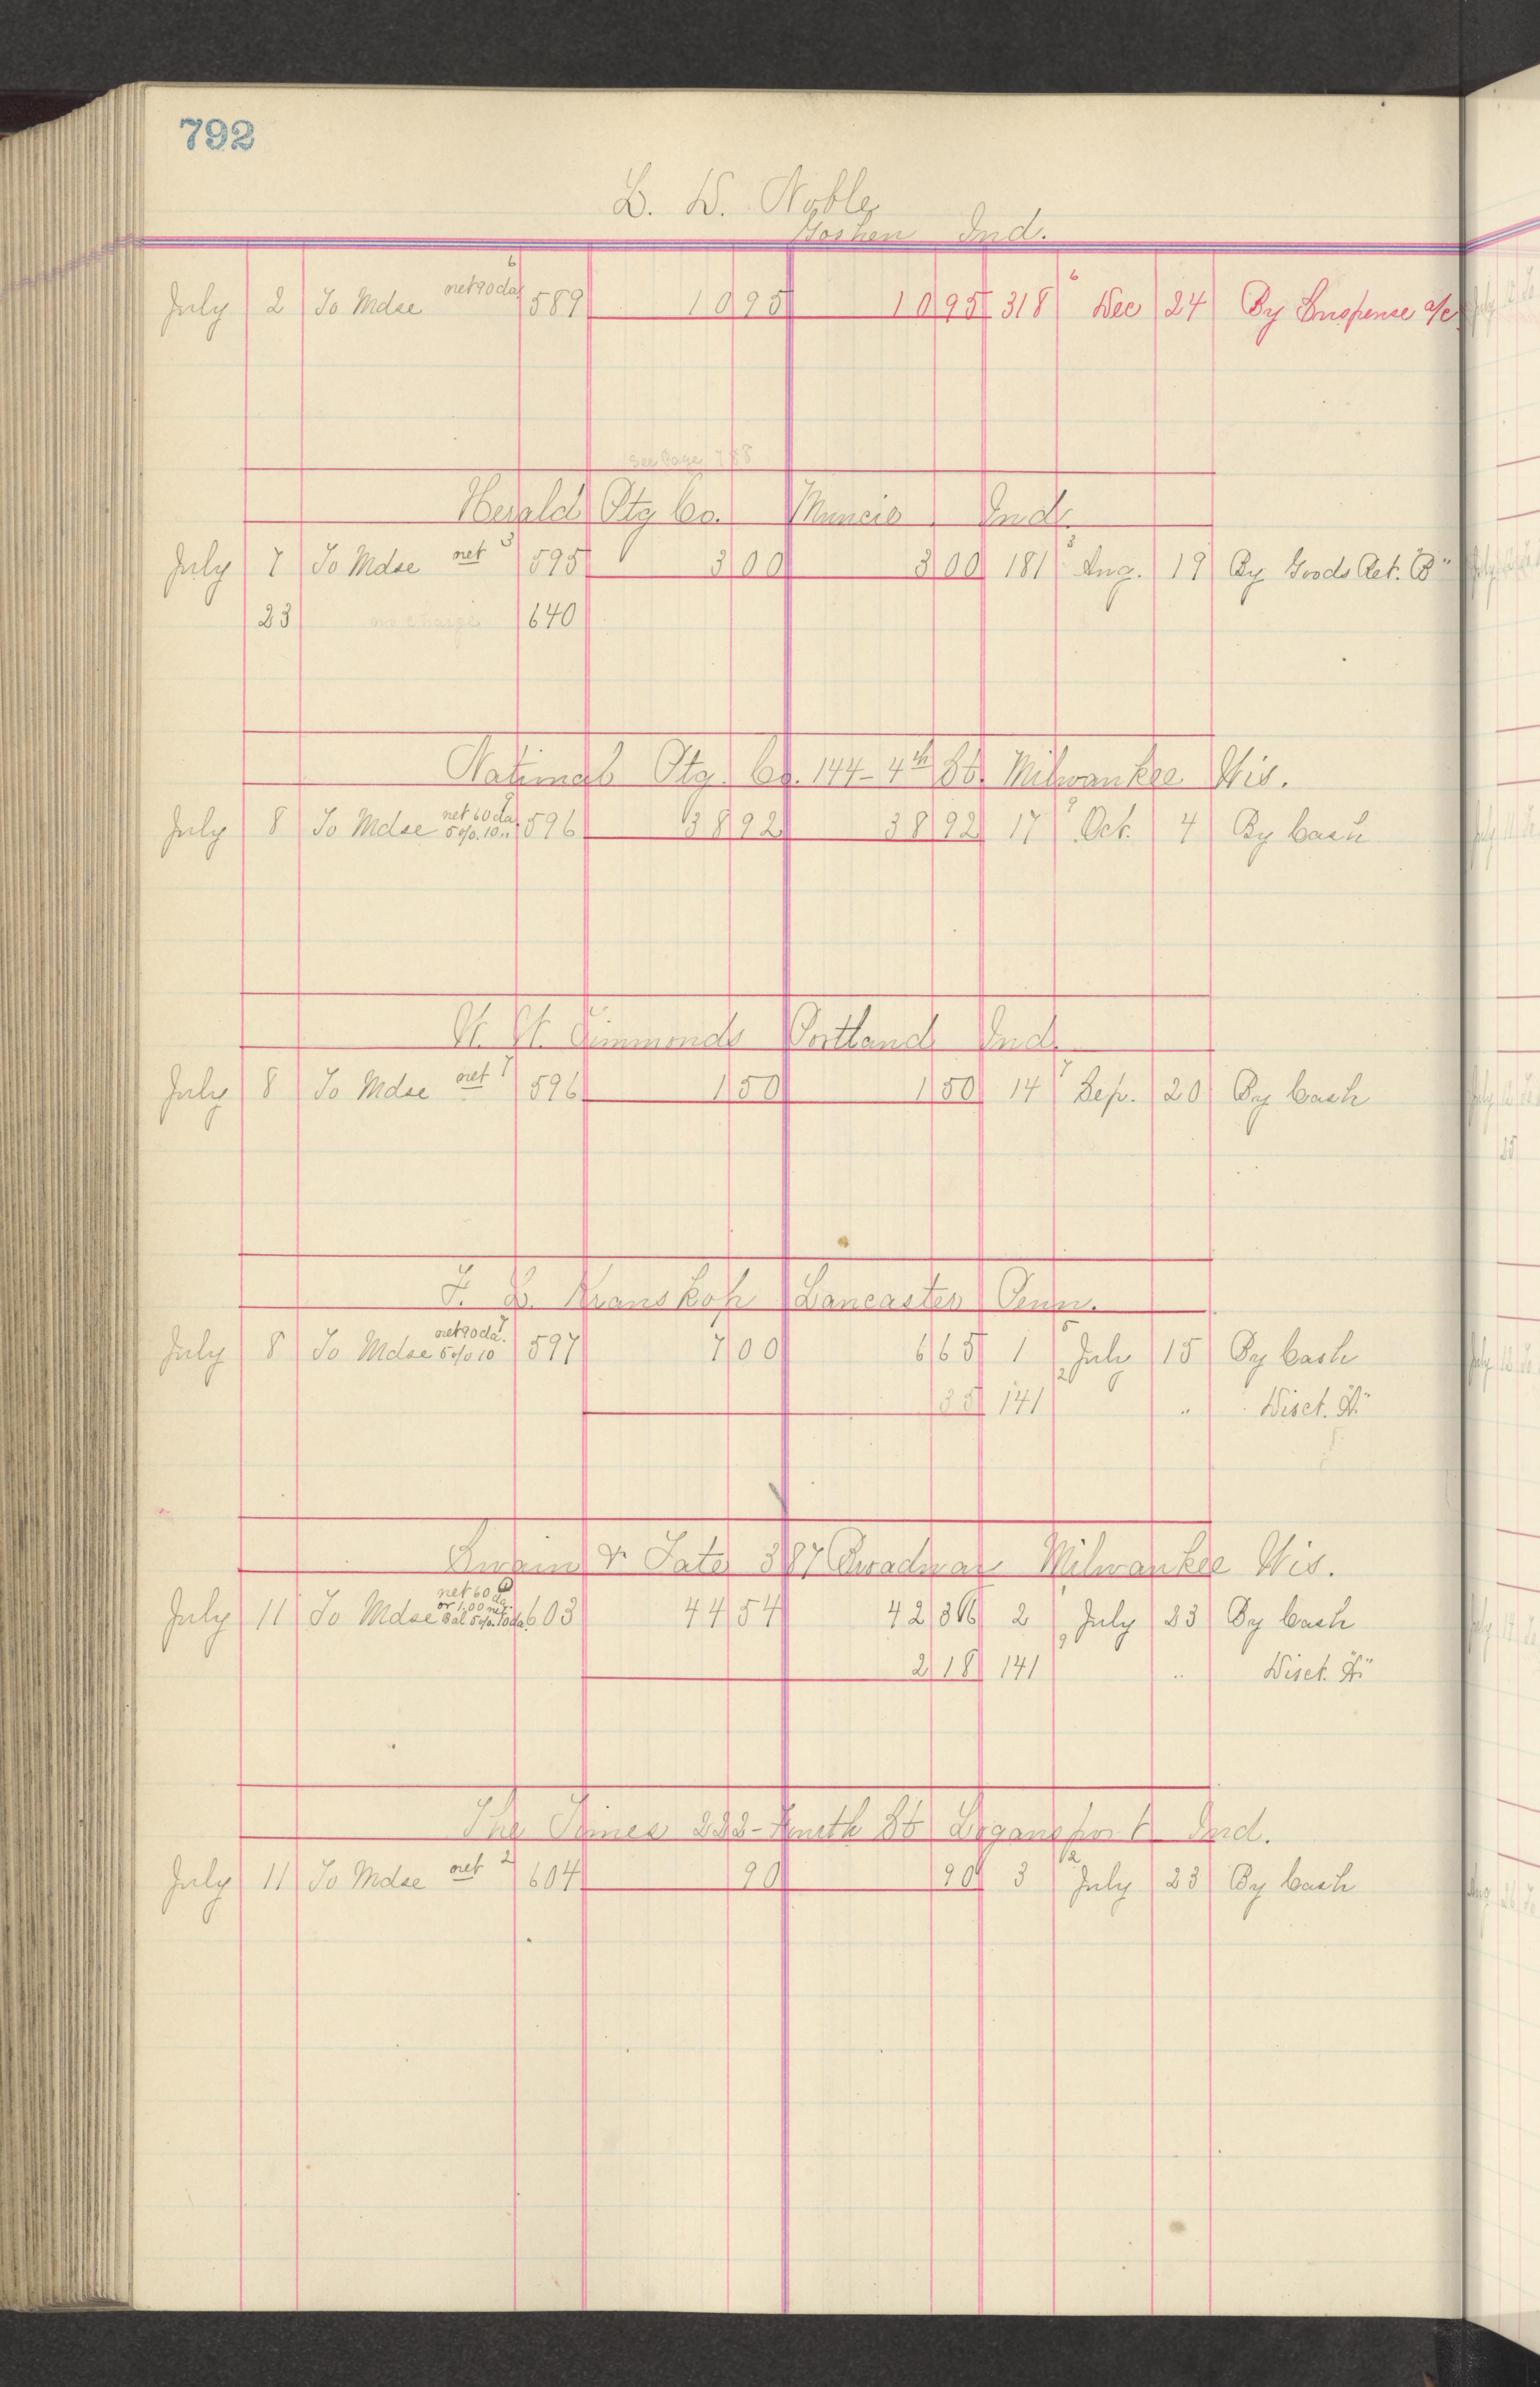 792
L. D. Noble
Goshen Ind.
July 2 To Mdse net 90 da 6 589 10 95 10 95 318 6 Dec 24 By Suspense a/c
See Page 788
Herald Ptg Co. Muncie Ind.
July 7 To Mdse net 3 595 3 00 3 00 181 3 Aug. 19 By Goods Ret. "B"
23 no charge 640
National Ptg. Co. 144-4th St. Milwaukee Wis.
July 8 To Mdse net 60 da. 5%. 10 " 596 38 92 38 92 17 9 Oct. 4 By Cash
W. W. Timmonds Portland Ind.
July 8 To Mdse net 7 596 1 50 1 50 14 7 Sep. 20 By Cash
F. L. Kranskop Lancaster Penn.
July 8 To Mdse net 90 da. 5% 10 7 597 7 00 6 65 1 5 July 15 By Cash
35 141 2 " Disct. "A"
Swain & Tate 387 Broadway Milwaukee Wis.
July 11 To Mdse net 60 da. or 1.00 net. Bal 5%. 10 da. 603 44 54 42 36 2 July 23 By Cash
2 18 141 9 " Disct. "A"
The Times 222-Fourth St Logansport Ind.
July 11 To Mdse net 2 604 90 90 3 12 July 23 By Cash